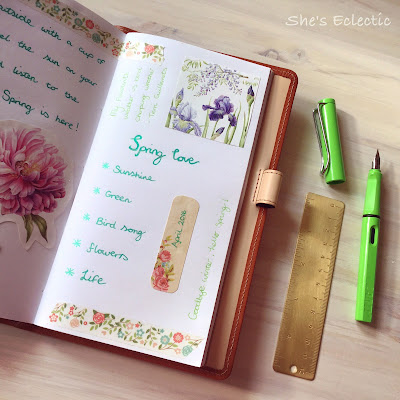 She's Eclectic
outside with a cup of
feel the sun on your
listen to the
Spring is here!
Spring love
* Sunshine
* Green
* Bird song
* flowers
* Life
April 2016
Goodbye winter, hello spring!